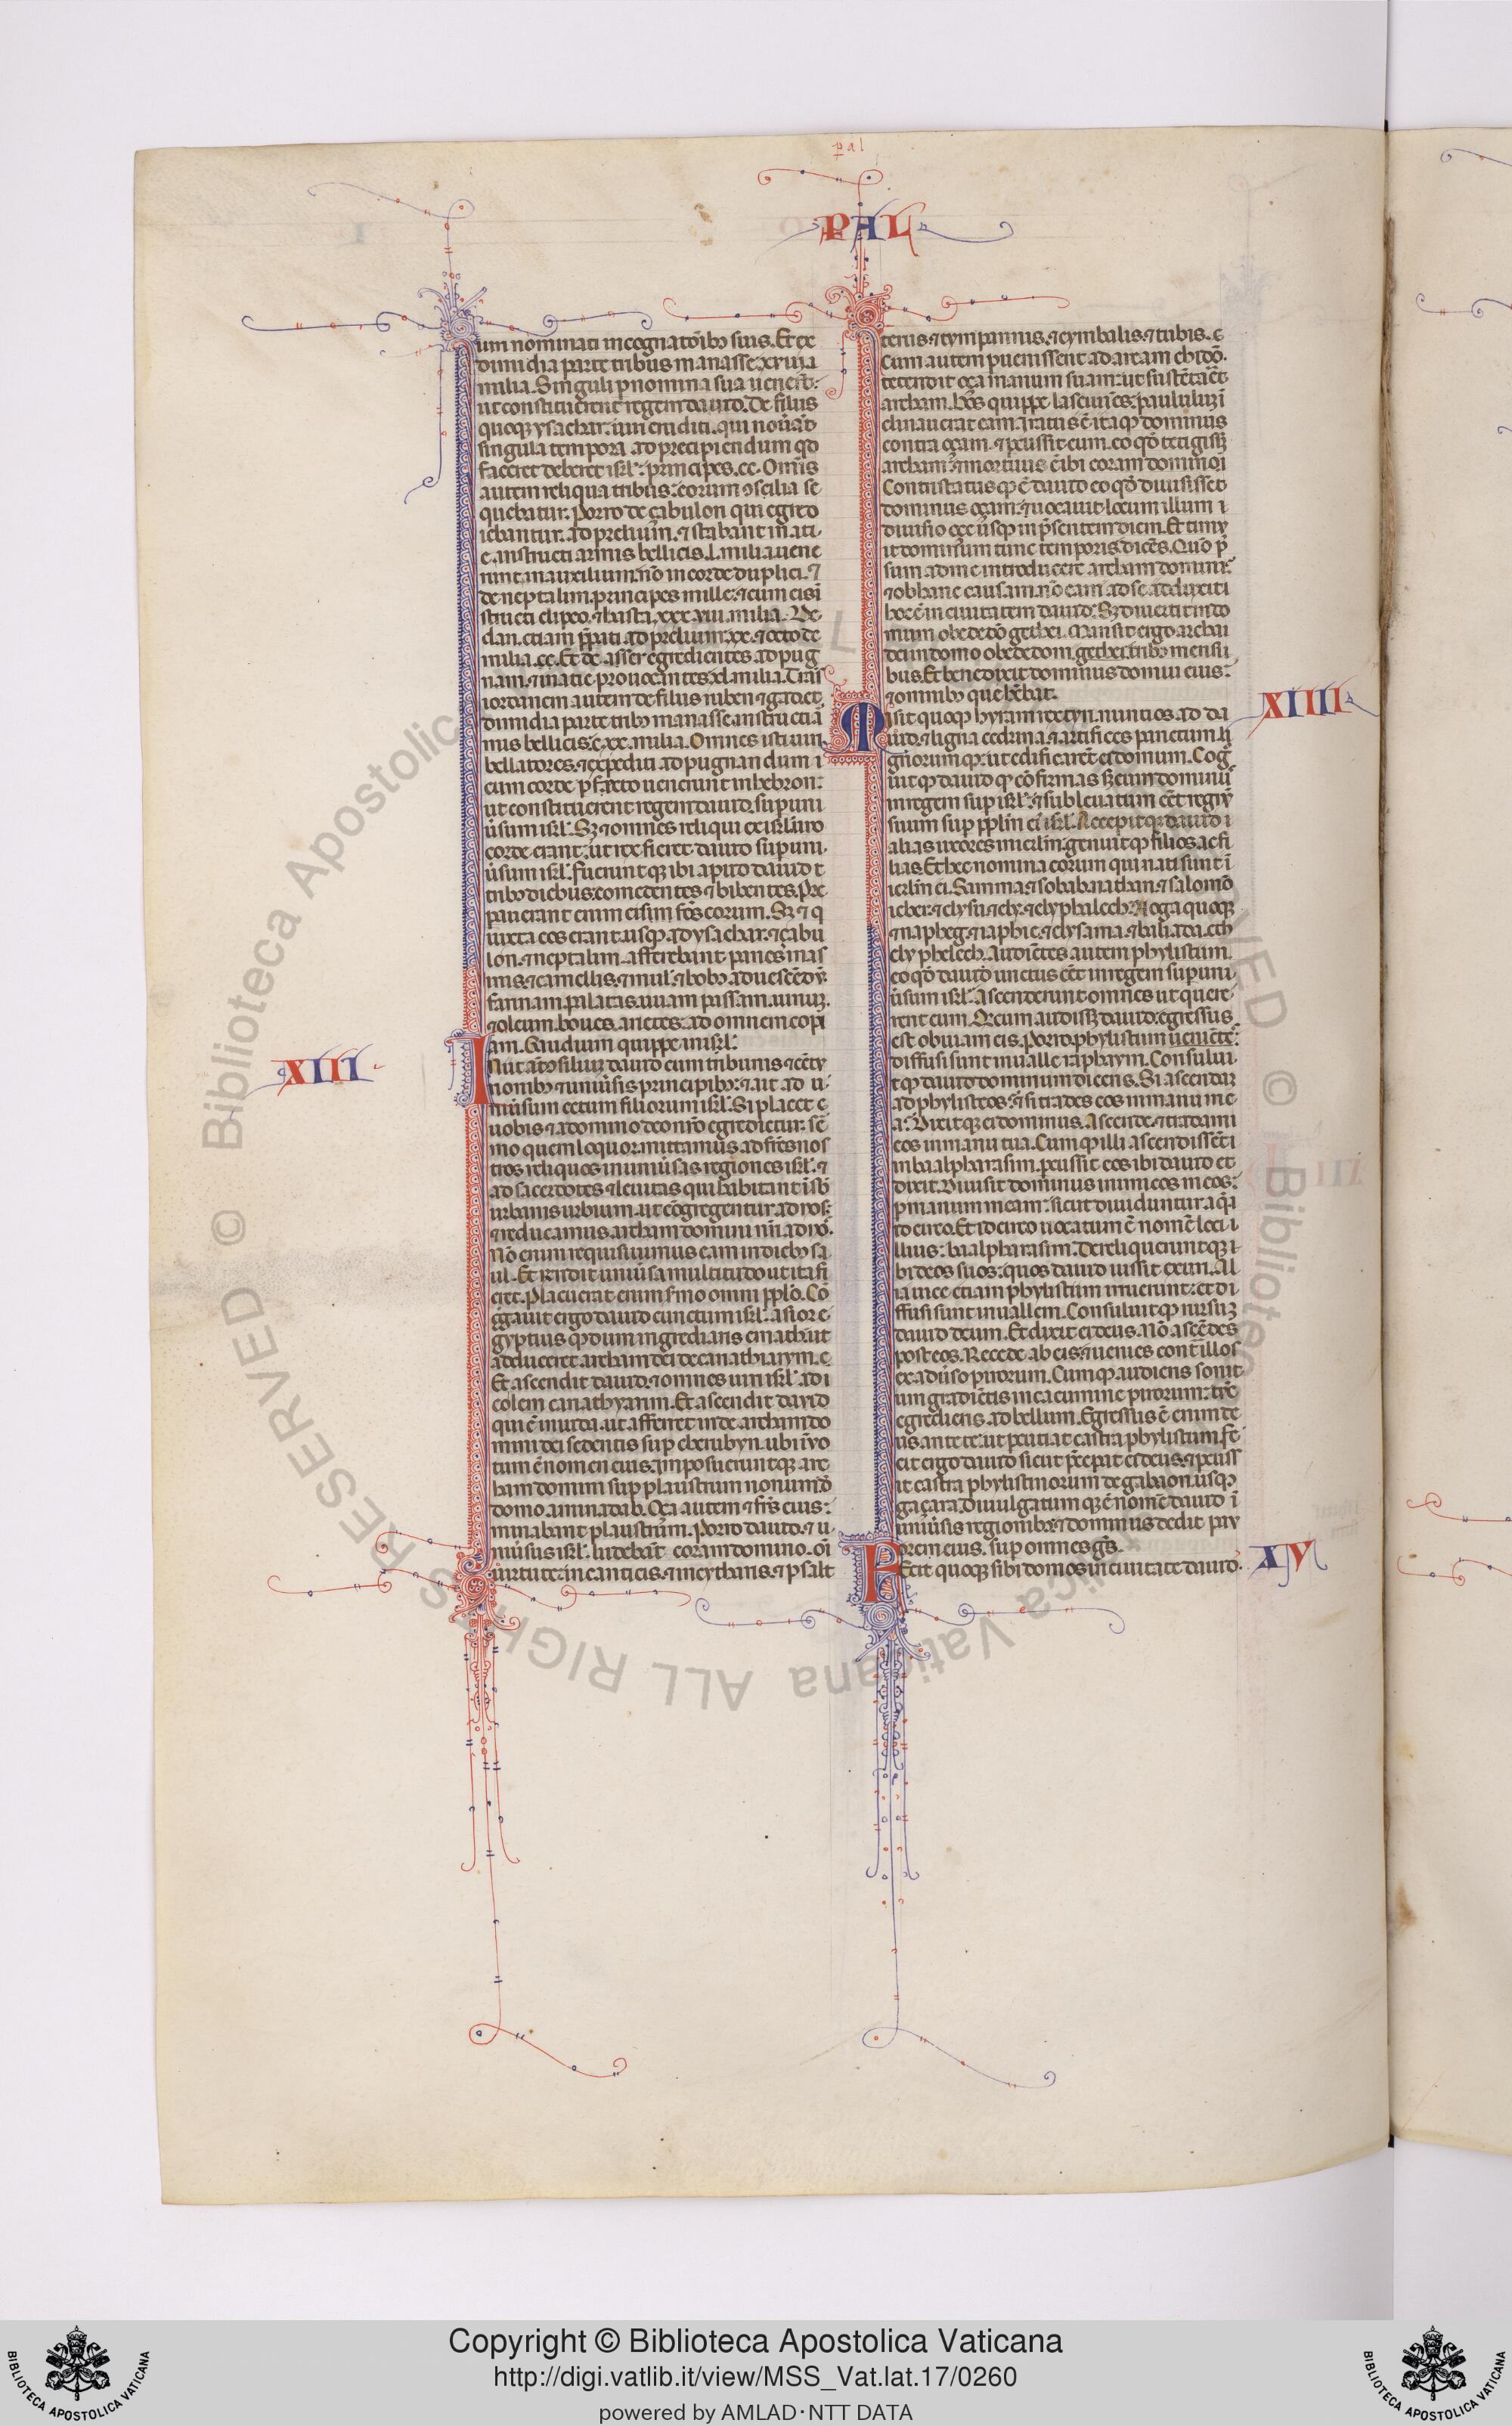 pal
PAL
um nominati in cognatōibꝯ suis. Et ex
dimidia parte tribus manasse. xviii.
milia. Singuli p nomina sua uenerūt:
ut constituerent regem dauid. De filiis
quoqꝫ ysachar: uiri eruditi. qui nouāt
singula tempora ad precipiendum qd
facere deberet isrl': principes. cc. Om̄is
autem reliqua tribus: eorum ꝯsilia se
quebatur. Porro de çabulon qui egredi
iebantur. ad prelium. ⁊ stabant in aci
e. instructi armis bellicis. l. milia uene
runt in auxilium: nō in corde duplici. ⁊
de neptalim. principes mille: ⁊ cum eis ī
structi clipeo. ⁊ hasta. xxx. vii. milia. De
dan. etiam p̄pati ad prelium. xx. ⁊ octo de
milia. cc. Et de asser egredientes ad pug
nam. ⁊ in acie prouocantes. xl. milia. Trās
iordanem autem de filiis ruben ⁊ gad. et
dimidia parte tribꝯ manasse instructi ar
mis bellicis. c. xx. milia. Omnes isti uiri
bellatores. ⁊ expediti ad pugnandum i
cum corde pfecto uenerunt in hebron:
ut constituerent regem dauid. sup uni
ūsum isrl'. Sꝫ ⁊ omnes reliqui ex isrl' uno
corde erant: ut rex fieret dauid sup uni
ūsum isrl'. Fuerunt qꝫ ibi apud dauid t
tribꝯ diebus. comedentes ⁊ bibentes. Pre
parauerant enim eis frēs eorum. Sꝫ ⁊ q
iuxta eos erant. usqꝫ ad ysachar. ⁊ çabu
lon. ⁊ neptalim. afferebant panes in as
inis. ⁊ camellis. ⁊ mul'. ⁊ bobꝯ ad uescēdū.
farinam. palatas. uuam passam. uinuꝫ.
⁊ oleum. boues. arietes. ad omnem copi
am. Gaudium quippe in isrl'.
XIII
Iniit aūt ꝯsiliuꝫ dauid cum tribunis ⁊ cēty
rionibꝯ ⁊ uniūsis principibꝯ: ⁊ ait ad u
niūsum cetum filiorum isrl'. Si placet e
uobis ⁊ a domino deo nr̄o egredietur. sē
mo quem loquor. mittamus ad frēs nos
tros reliquos in uniūsas regiones isrl'. ⁊
ad sacerdotes ⁊ leuitas qui habitant ī sb
urbanis urbium. ut cōgregentur ad nos:
⁊ reducamus archam domini nr̄i ad nō.
Nō enim requisiuimus eam in diebꝯ sa
ul. Et rendit uniūsa multitudo ut ita fi
eret. Placuerat enim smo omni ppl'o. Cō
ḡgauit ergo dauid cunctum isrl'. a sior e
gyptius qꝫ dum ingredians emath: ut
adduceret archam dei de cariathiarym. e
Et ascendit dauid. ⁊ omnes uiri isrl' ad i
colem cariathyarim. Et ascendit david
qui ē in iuda. ut afferret inde archam do
mini dei sedentis sup cherubyn. ubi īuo
tum ē nomen eius. imposuerunt qꝫ arc
ham domini sup plaustrum nouum d
domo aminadab. Oça autem ⁊ frīs eius:
minabant plaustrum. Porro dauid. ⁊ u
niūsus isrl'. ludebāt coram domino. oī
uirtute: in canticis. ⁊ in cytharis. ⁊ psalt
teriis ⁊ tympannis. ⁊ cymbalis. ⁊ tubis. c
Cum autem puenissent ad aream chidō.
tetendit oça manum suam: ut sustētaēt
archam. bōs quippe lasciuiēs. paululuꝫ ī
clinauerat eam. Iratus ē itaqꝫ dominus
contra oçam. ⁊ pcussit eum. eo qd tetigissꝫ
archam: ⁊ mortuus ē ibi coram domino.
Contristatus qꝫ ē dauid eo qd diuisisset
dominus oçam: ⁊ uocauit locum illum i
diuisio oçe usqꝫ in p̄sentem diem. Et timu
it dominum tunc temporis. dicēs. Quō p
sum ad me introducere archam domini:
⁊ ob hanc causam. nō eam ad se adduxit i
hoc ē in ciuitatem dauid: Sꝫ diuertit in do
mum obededō gethei. Mansit ergo archa i
dei in domo obededom. gethei. tribꝯ mensi
bus. Et benedixit dominus domui eius.
⁊ omnibꝯ que hēbat.
XIIII
Misit quoqꝫ hyram rex tyri. nuntios ad da
uid. ⁊ ligna cedrina. ⁊ artifices parietum. li
gnorum qꝫ: ut edificarēt ei domum. Cog
uit qꝫ dauid qꝫ cōfirmasset eum dominū
in regem sup isrl'. ⁊ subleuatum eēt regnū
suum sup pplm ei isrl'. Accepit qꝫ dauid i
alias uxores in ierlm. genuit qꝫ filios ac fi
lias. Et hec nomina eorum qui nati sunt ī
ierlm ei. Samma. ⁊ sobab. nathan. ⁊ salomō
ieber. ⁊ elysu. ⁊ ely. ⁊ elyphalech. Noga quoqꝫ
⁊ napheg. ⁊ iaphie. ⁊ elysama. ⁊ baliada. eth
elyphelech. Audiētes autem phylistiim.
eo qd dauid unctus eēt in regem sup uni
ūsum isrl'. Ascenderunt omnes ut quere
rent eum. Q cum audissꝫ dauid: egressus
est obuiam eis. Porro phylistiim uenientes
diffusi sunt in ualle raphaym. Consului
t qꝫ dauid dominum dicens. Si ascendaꝫ
ad phylisteos: ⁊ si trades eos in manu me
a: Dixit qꝫ ei dominus. Ascende. ⁊ tradam i
eos in manu tua. Cumqꝫ illi ascendissēt i
in baalpharasim. pcussit eos ibi dauid et
dixit. Diuisit dominus inimicos meos:
p manum meam: sicut diuiduntur aq̄.
idcirco. Et idcirco uocatum ē nomē loci i
llius: baalpharasim. Dereliquerunt qꝫ i
bi deos suos: quos dauid iussit exuri. Al
ia uice etiam phylistiim irruerunt: et di
ffusi sunt in uallem. Consuluit qꝫ rursuꝫ
dauid deum. Et dixit ei deus. Nō ascēdes
post eos. Recede ab eis. ⁊ uenies cont illos
ex aduerso pirorum. Cumqꝫ audieris sonit
um gradiētis in cacumine pirorum: tūc
egrediens. ad bellum. Egressus ē enim de
us ante te: ut pcutiat castra phylistiim. Fe
cit ergo dauid sicut p̄ceperat ei deus. ⁊ pcuss
it castra phylistinorum de gabaon. usqꝫ
gaçara. Diuulgatum qꝫ ē nomē dauid ī
uniūsis regionibꝯ. ⁊ dominus dedit pau
orem eius. sup omnes gēs.
XV
Fecit quoqꝫ sibi domos in ciuitate dauid.
Copyright © Biblioteca Apostolica Vaticana
http://digi.vatlib.it/view/MSS_Vat.lat.17/0260
powered by AMLAD·NTT DATA
BIBLIOTECA APOSTOLICA VATICANA
BIBLIOTECA APOSTOLICA VATICANA
© Biblioteca Apostolica Vaticana ALL RIGHTS RESERVED